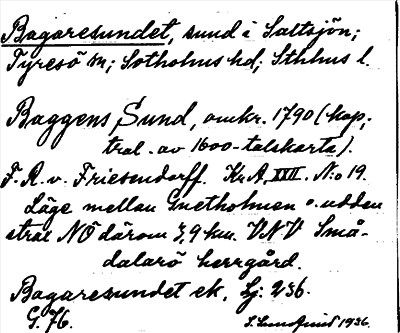 Bagaresundet, sund i Saltsjön;
Tyresö sn; Sotholms hd; Sthlms l.
Baggens Sund, omkr. 1790 (kop;
tral. av 1600-talskarta).
F. R. v. Friesendorff. Kr.A. XXII. N:o 19.
Läge mellan Gnetholmen o. udden
strax NÖ därom 3,9 km. VNV Små-
dalarö herrgård.
Bagaresundet ek. Lj: 236.
G. 76.
S. Lundqvist 1936.